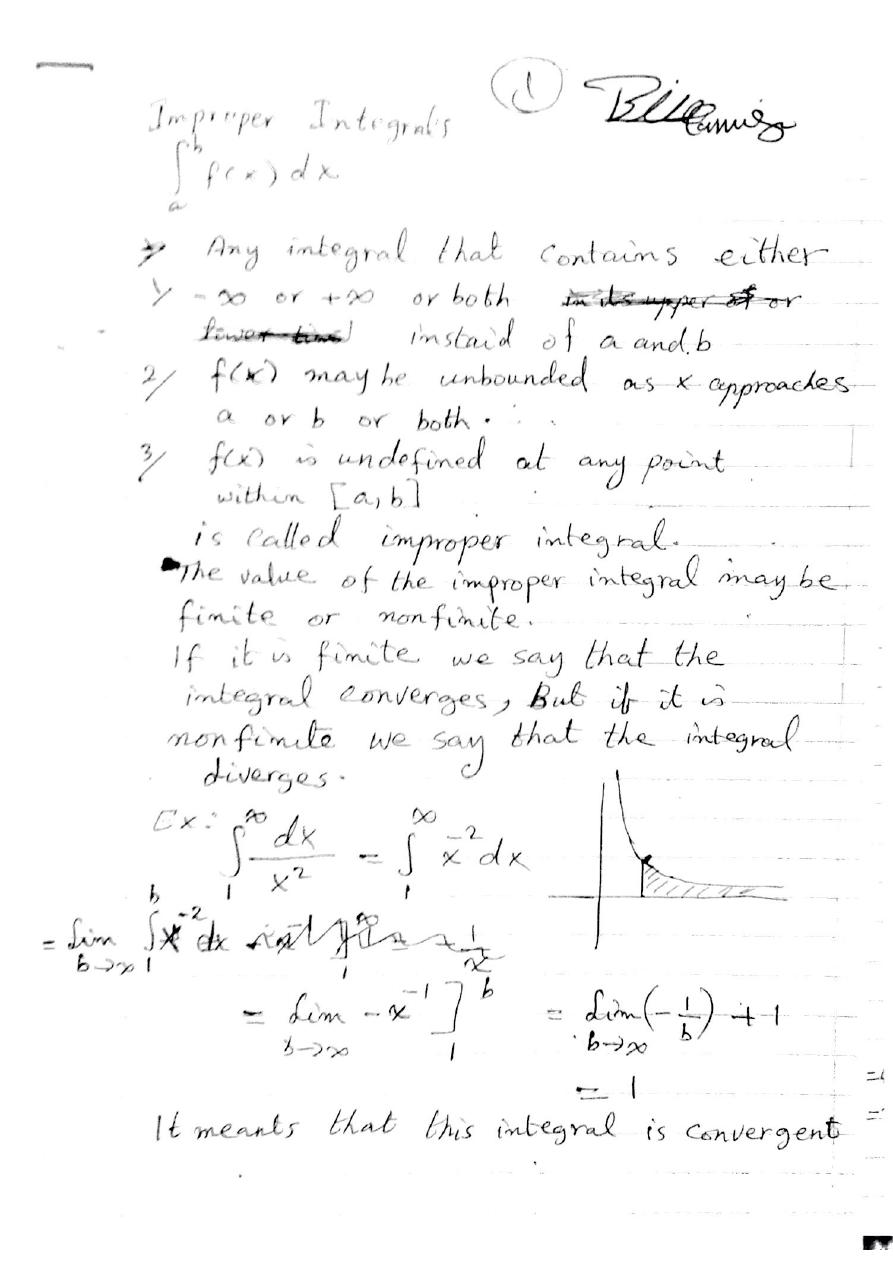 ①
Improper Integrals
∫_a^b f(x) dx
Any integral that contains either
1/ -∞ or +∞ or both in its upper or
lower instaid of a and b
2/ f(x) may be unbounded as x approaches
a or b or both.
3/ f(x) is undefined at any point
within [a,b]
is called improper integral.
The value of the improper integral may be
finite or nonfinite.
If it is finite we say that the
integral converges, But if it is
nonfinite we say that the integral
diverges.
Ex: ∫_1^∞ dx/x² = ∫_1^∞ x^-2 dx
= lim b→∞ ∫_1^b x^-2 dx
= lim b→∞ -x^-1 ]_1^b = lim b→∞ (-1/b) + 1
= 1
It meants that this integral is convergent